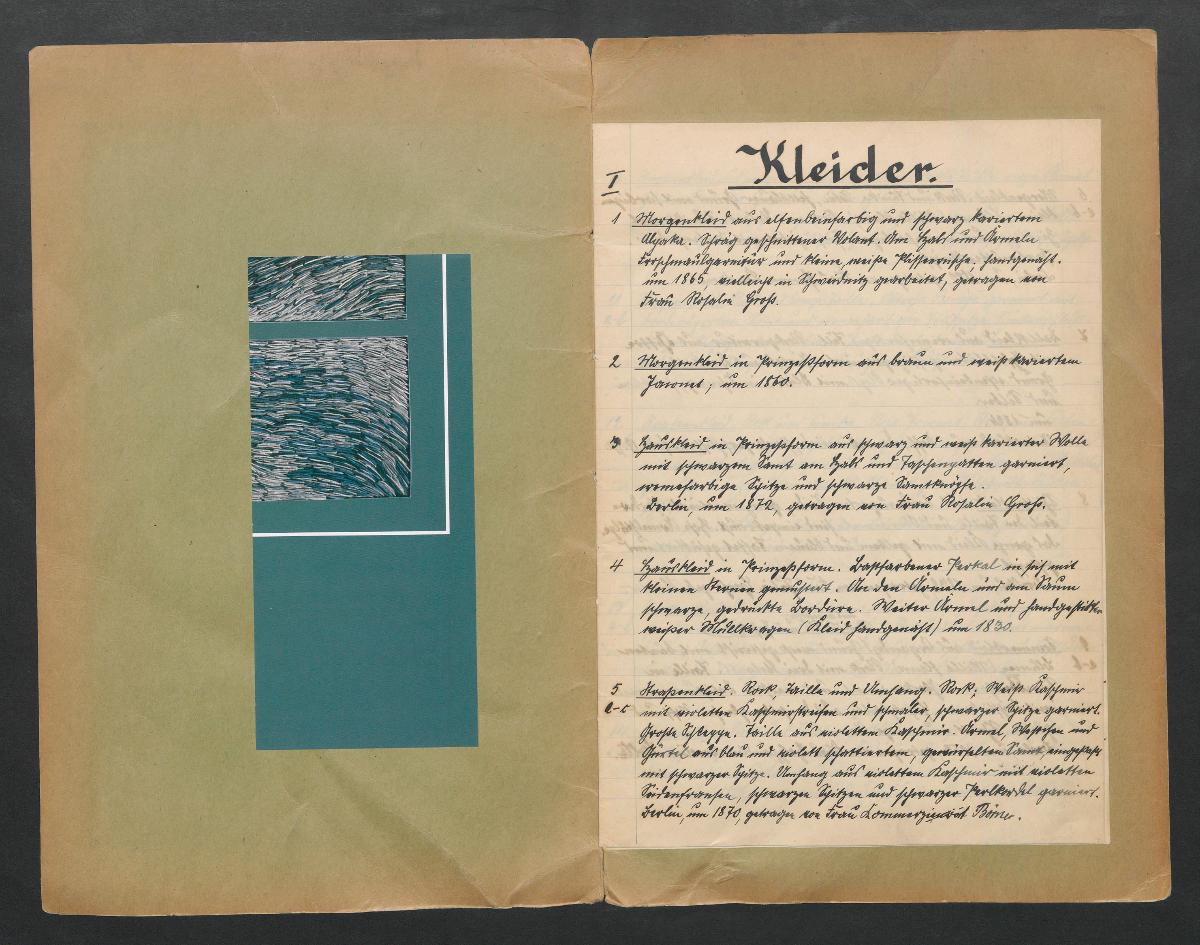 Kleider.
I
1 Morgenkleid aus elfenbeinfarbig und schwarz kariertem
Alpaka. Schräg geschnittener Volant. Am Hals und Ärmeln
Froschmaulgarnitur und kleine, weiße Plisseerüsche, handgenäht.
um 1865, vielleicht in Schweidnitz gearbeitet, getragen von
Frau Rosalie Groß.
2 Morgenkleid in Prinzeßform aus braun und weiß kariertem
Jaconet; um 1860.
3 Hauskleid in Prinzeßform aus schwarz und weiß karierter Wolle
mit schwarzem Samt am Hals und Taschenpatten garniert,
cremefarbige Spitze und schwarze Samtknöpfe.
Berlin, um 1872, getragen von Frau Rosalie Groß.
4 Hauskleid in Prinzeßform. Bastfarbener Perkal in sich mit
kleinen Sternen gemustert. An den Ärmeln und am Saum
schwarze, gedruckte Bordüre. Weiter Ärmel und handgestickter
weißer Mullkragen (Kleid handgenäht) um 1830.
5 Straßenkleid. Rock, Taille und Umhang. Rock: Weiß Kaschmir
a-c mit violetten Kaschmirstreifen und schmaler, schwarzer Spitze garniert.
Große Schleppe. Taille aus violettem Kaschmir. Ärmel, Westchen und
Gürtel aus blau und violett schattiertem, gewürfelten Samt eingefaßt
mit schwarzer Spitze. Umhang aus violettem Kaschmir mit violetten
Seidenfransen, schwarzen Spitzen und schwarzer Perlkordel garniert.
Berlin, um 1870, getragen von Frau Kommerzienrat